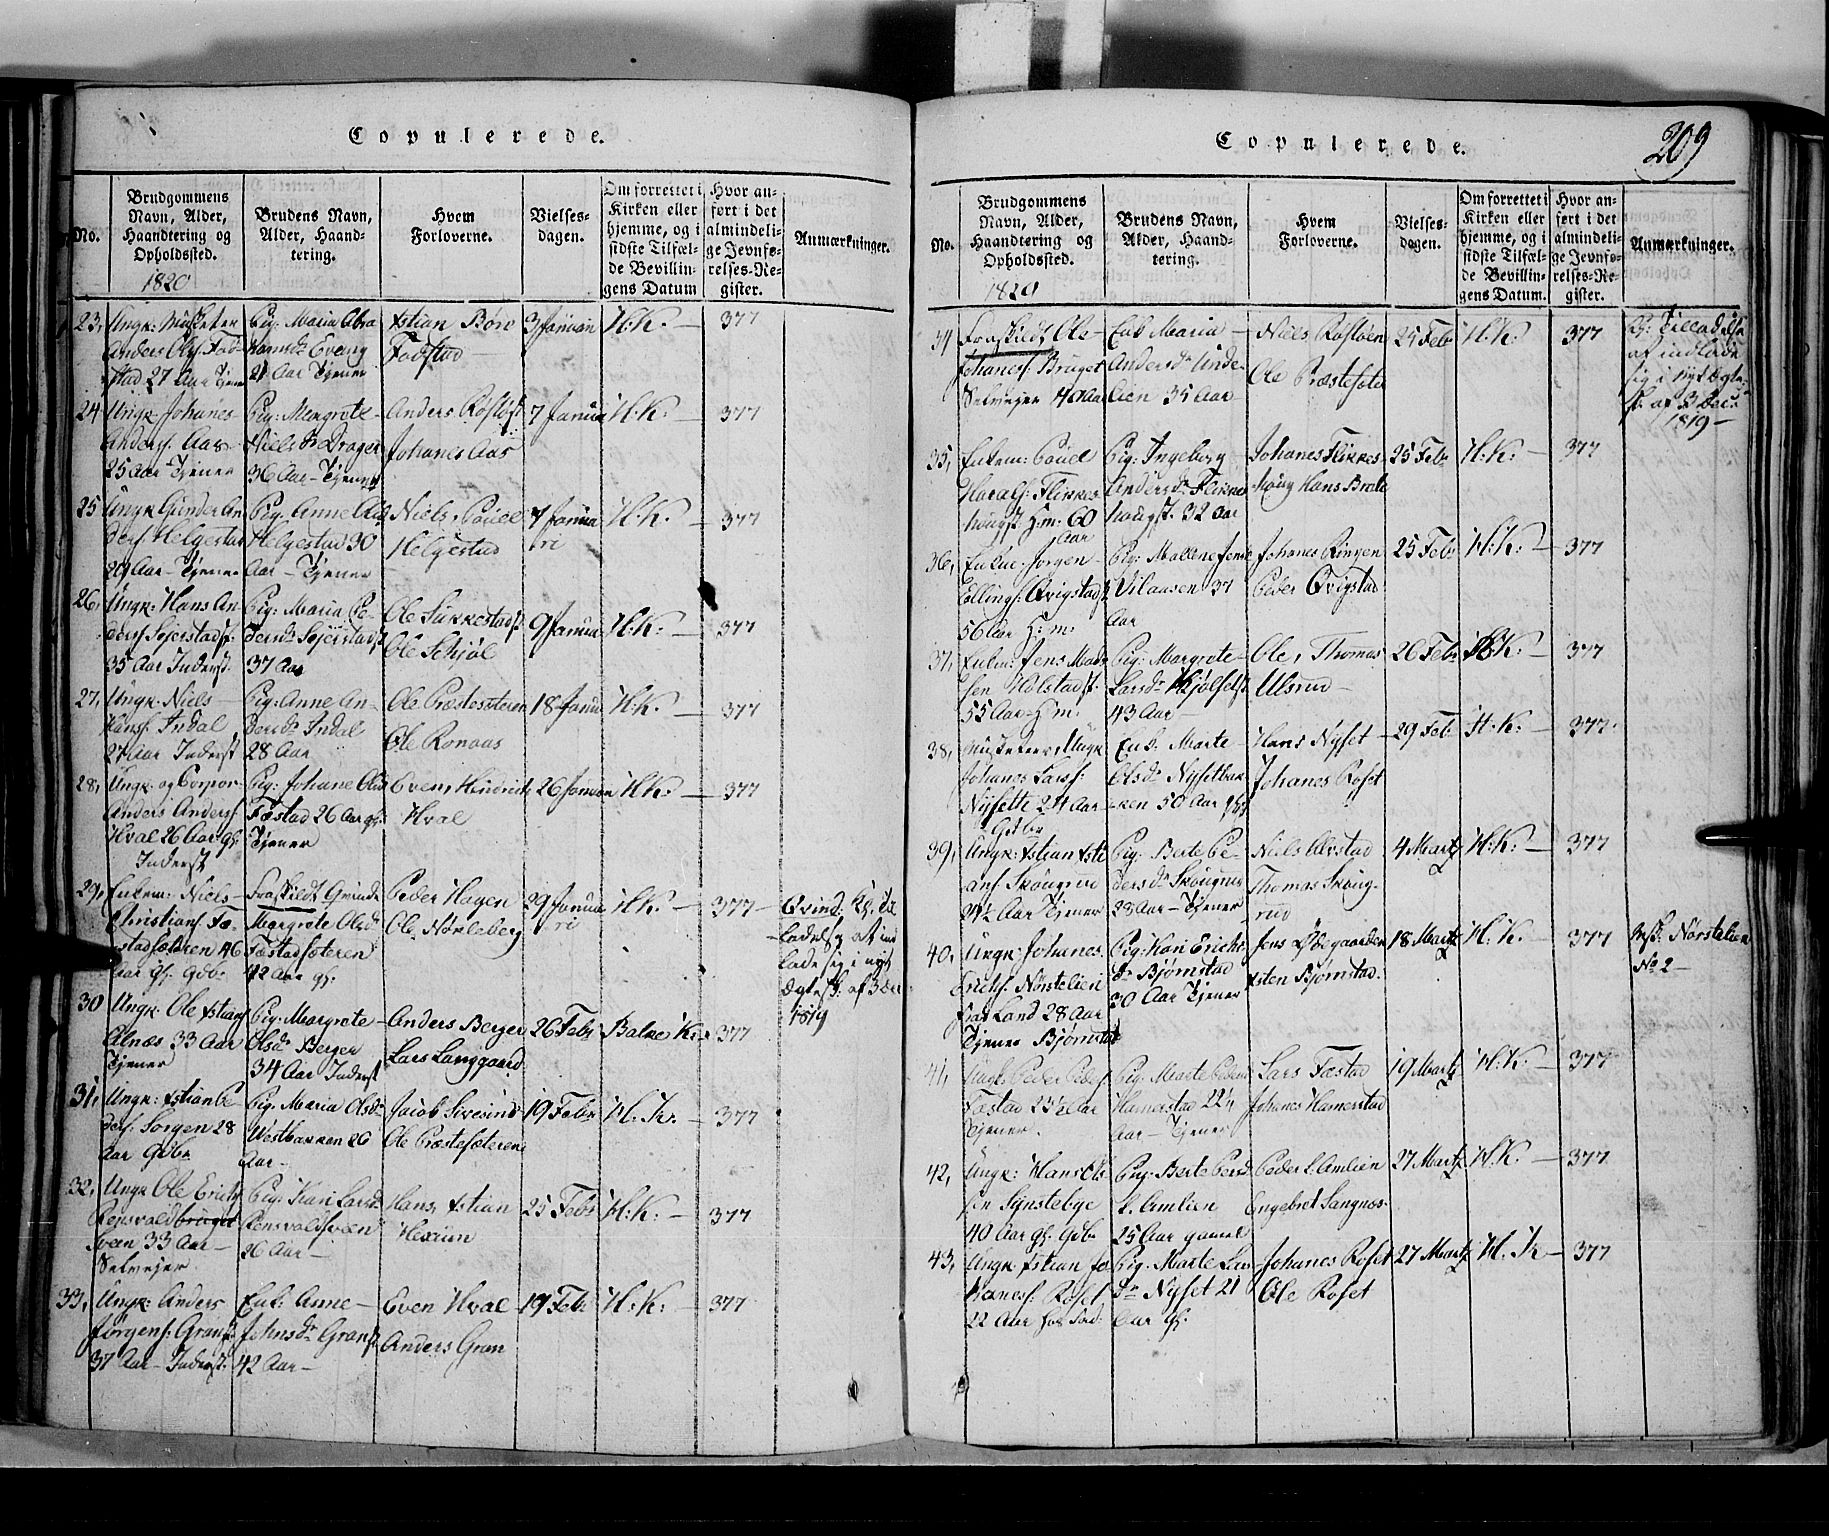 Copulerede.
No.
Brudgommens
Navn, Alder,
Haandtering og
Opholdssted.
1820
Brudens Navn,
Alder, Haand-
tering.
Hvem
Forloverne.
Vielses-
dagen.
Om forrettet i
Kirken eller
hjemme, og i
sidste Tilfæl-
de Bevillin-
gens Datum
Hvor an-
ført i det
almindeli-
ge Jevnfø-
relses-Re-
gister.
Anmærkninger.
23,
Ungk: Musketer
Anders Ols: Fod-
stad 27 Aar Tjener
Pig: Maria Abra
hamsdr Evang
21 Aar Tjener
Xstian Børv
Fodstad
3 Januari
H:K:
377
24
Ungk: Johanes
Anders: Aas
25 Aar Tjener
Pig: Margrete
Nielsdr Drager
36 Aar - Tjener
Anders
Johanes Aas
7 Janua
H:K:
377
25
Ungk Gunder An
ders: Helgestad
29 Aar - Tjener
Pig. Anne
Helgestad 30
Aar - Tjener
Niels, Povel
Helgestad
7 Janua
ri
H.K.
377
26,
Ungk: Hans An
ders: Sojerstads:
35 Aar Inderst.
Pig: Maria Pe-
dersdr Sojerstads
37 Aar
Ole Sukkestad
Ole Schjøl
9 Janua
H:K:
377
27,
Ungk: Niels
Hans: Indal
27 Aar Inderst
Pig: Anne An-
dersdr Indal
28 Aar
Ole Præstesæteren
Ole Ronaas
18 Janua
H:K:
377
28,
Ungk: og Corpor-
Anders Anders:
Hval 26 Aar gl:
Inderst
Pig: Johane Olsd
Fæstad 26 Aar gl:
Tjener
Even, Hindrich
Hval
26 Januar
H:K:
377
29,
Enkem: Niels
Christians: Fæ-
stadsæteren 46
Aar gl: Gdbr
Fraskildt Qvinde
Margrete Olsd
Fæstadsæteren
42 Aar gl:
Peder Hagen
Ole Nørleberg
29 Janua
ri
H:K:
377
Qvind. Kg: Til
ladelse at ind
lade sig i nyt
Ægtesk: af 3 Dec
1819
30
Ungk: Ole Xstians
Alnæs 33 Aar
Tjener
Pig: Margrete
Olsdr Berger
34 Aar Inderst
Anders Berger
Lars Langgaard
26 Febr
Balke K:
377
31,
Ungk: Xstian Pe
ders: Sorgen 28
Aar Gdbr
Pig. Maria Olsdr
Westbakken 20
Aar
Jacob Sivesind
Ole Præstesæteren
19 Febr
H. K.
377
32,
Ungk Ole Erichs
Rensvald bruget
Sveen 33 Aar
Selvejer
Pig: Kari Larsd
Rensvaldsveen
26 Aar
Hans, Xstian
Hexum
25 Febr
H:K:
377
33,
Ungk: Anders
Jørgens: Grans:
37 Aar - Inderst.
Enk: Anne
Johnsdr Grans:
42 Aar
Even Hval
Anders Gran
19 Febr
H:K:
377
Copulerede.
209
No.
Brudgommens
Navn, Alder,
Haandtering og
Opholdssted.
1820
Brudens Navn,
Alder, Haand-
tering.
Hvem
Forloverne.
Vielses-
dagen.
Om forrettet i
Kirken eller
hjemme, og i
sidste Tilfæl-
de Bevillin-
gens Datum.
Hvor an-
ført i det
almindeli-
ge Jevnfø-
relses-Re-
gister.
Anmærkninger.
34
Fraskildt Ole
Johaness: Bruget
Selvejer 40 Aar
Enk Maria
Andersdr Unde-
lien 35 Aar
Niels Rosloen
Ole Præstesæte
25 Febr
H:K:
377
Kg: Tilladelse
at indlade
sig i nyt Ægte
sk: af 3 Dec
1819
35,
Enkem: Povel
Harals: Flikkes
hougst. H:m: 60
Aar
Pig: Ingeborg
Andersdr Flikkes
hougst. 32 Aar
Johanes Flikkes
houg Hans Brote
25 Febr
H:K:
377
36,
Enkm: Jørgen
Ellings: Qvigstads
56 Aar H:m:
Pig: Mallene Jens
Vilaasen 37
Aar
Johanes Ringen
Peder Qvigstad
25 Febr
H:K:
377
37,
Enkm: Jens Mad
sen Holstads:
55 Aar H:m:
Pig: Margrete
Larsdr Kjølsets:
43 Aar
Ole, Thomas
Ulsrud
26 Febr
H:K:
377
38,
Musketeer, Ungk
Johanes Larss:
Nysette 24 Aar
Gdbr
Enk: Marte
Olsdr Nysetbak
ken 50 Aar
Hans Nyset
Johanes Roset
29 Febr
H:K:
377
39,
Ungk: Xstian Xsti
ans: Skougrud
21½ Aar Tjener
Pig: Berte Pe-
dersdr Skougrud
28 Aar - Tjener
Niels Alvstad
Thomas Skoug-
rud
4 Martz
H:K:
377
40,
Ungk: Johanes
Erichs: Nørstelien
fra Land 28 Aar
Tjener Bjørnstad
Pig: Kari Erichs
dr Bjørnstad
30 Aar Tjener
Jens Ødegaarden
Xsten Bjørnstad.
18 Martz
H:K:
377
Nørstelien
No 2
41,
Ungk: Peder Peders
Fæstad 23½ Aar
Tjener.
Pig: Marte Peders
Hamerstad 22½
Aar - Tjener
Lars Fæstad
Johanes Hamerstad
19 Martz
H:K:
377
42,
Ungk: Hans Ol-
sen Synstebye
40 Aar gl: Gdbr
Pig: Berte Persd
l. Amlien
25 Aar gamel
Peder l. Amlien
Engebret Sangnæs
27 Martz
H.K.
377
43,
Ungk Xstian Jo
haness: Roset
22 Aar
Pig: Marte Lars
dr Nyset 21
Aar gl.
Johanes Roset
Ole Roset
27 Martz
H. K
377